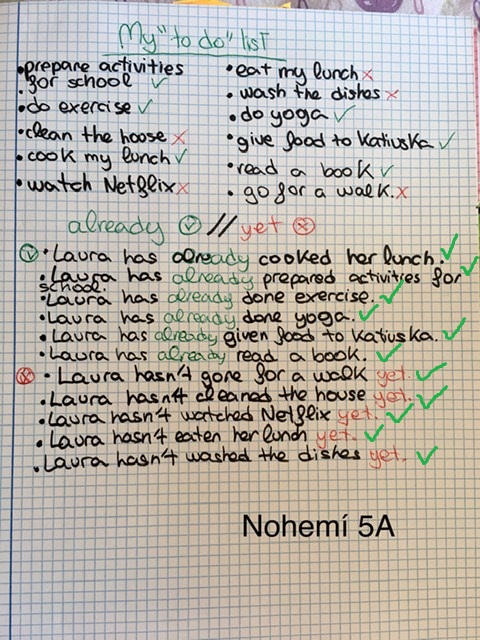 My "to do" list
•prepare activities
for school ✓
•do exercise ✓
•clean the hoose x
•cook my lunch ✓
•watch Netflix x
•eat my lunch x
•wash the dishes x
•do yoga ✓
•give food to Katiuska ✓
•read a book ✓
•go for a walk. x
already ✓ // yet x
✓ •Laura has already cooked her lunch. ✓
•Laura has already prepared activities for ✓
school.
•Laura has already done exercise. ✓
•Laura has already done yoga. ✓
•Laura has already given food to Katiuska. ✓
•Laura has already read a book. ✓
x •Laura hasn't gone for a walk yet. ✓
•Laura hasn't cleaned the house yet. ✓
•Laura hasn't watched Netflix yet. ✓ ✓
•Laura hasn't eaten her lunch yet. ✓
•Laura hasn't washed the dishes yet. ✓
Nohemí 5A